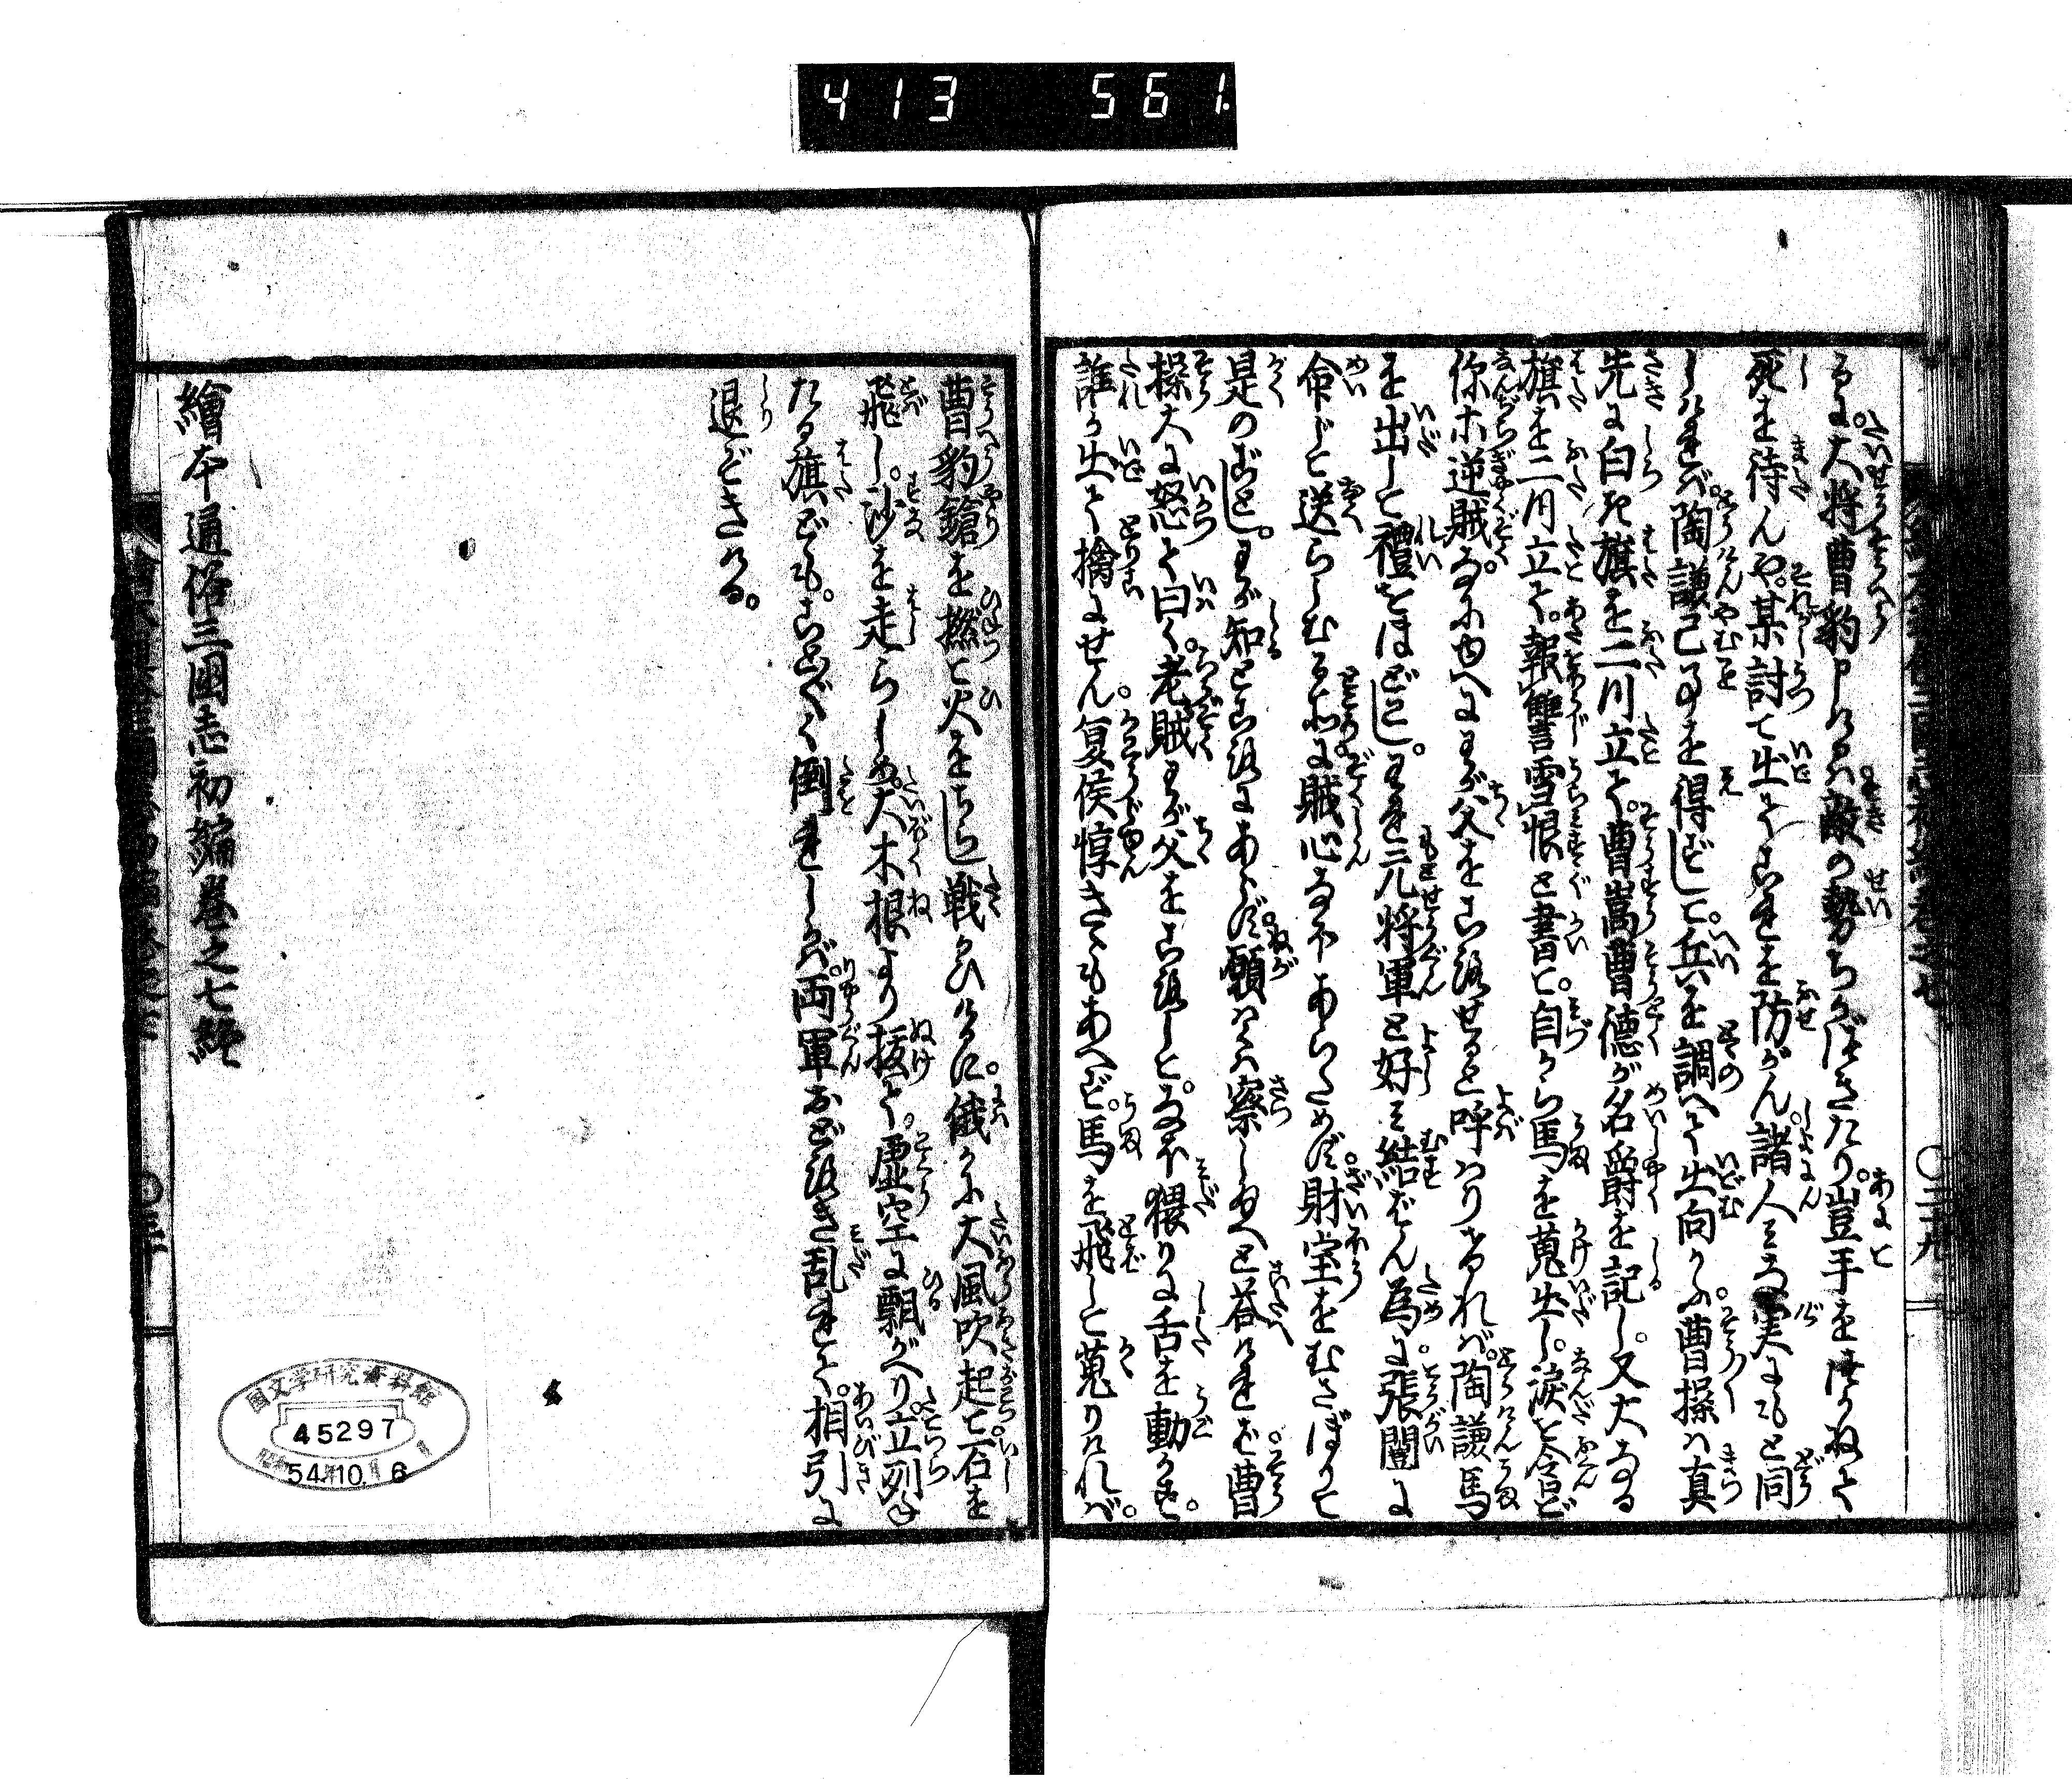 413 561
るに。大将曹豹申しけるハ敵の勢ちかづきたり。豈手を束ねて
死を待んや。某討て出てこれを防がん。諸人みな実にもと同
しければ。陶謙已事を得ずして。兵を調へて出向かふ。曹操ハ真
先に白き旗を二川立て。曹嵩曹徳が名爵を記し。又大なる
旗を二川立て。報讐雪恨と書て。自から馬を乗出し。涙を含ど
你ホ逆賊なにゆへにわが父をころせると呼ハりければ。陶謙馬
を出して禮をほどこし。われ元ハ将軍と好を結ばん為に。張闓に
命じて送らしむる所に。賊心なホあらためず。財宝をむさぼりて
是のごとし。わが知ところにあらず。願ハくハ察し給へと答ければ。曹
操大に怒て曰く。老賊わが父をころして。なホ猥りに舌を動かす。
誰か出て擒にせん。夏侯惇きくもあへず。馬を飛して蒐りければ。
曹豹鎗を撚て火をちらし戦かひけるに。俄かに大風吹起て石を
飛し。沙を走らしめ。大木根より抜て。虚空に飄がへり。立列ね
たる旗ども。ことごとく倒れしかば。両軍おどろき乱れて。相引に
退ぞきける。
繪本通俗三國志初編巻之七終
○二十九
国文学研究資料館
45297
昭和
54.10.6